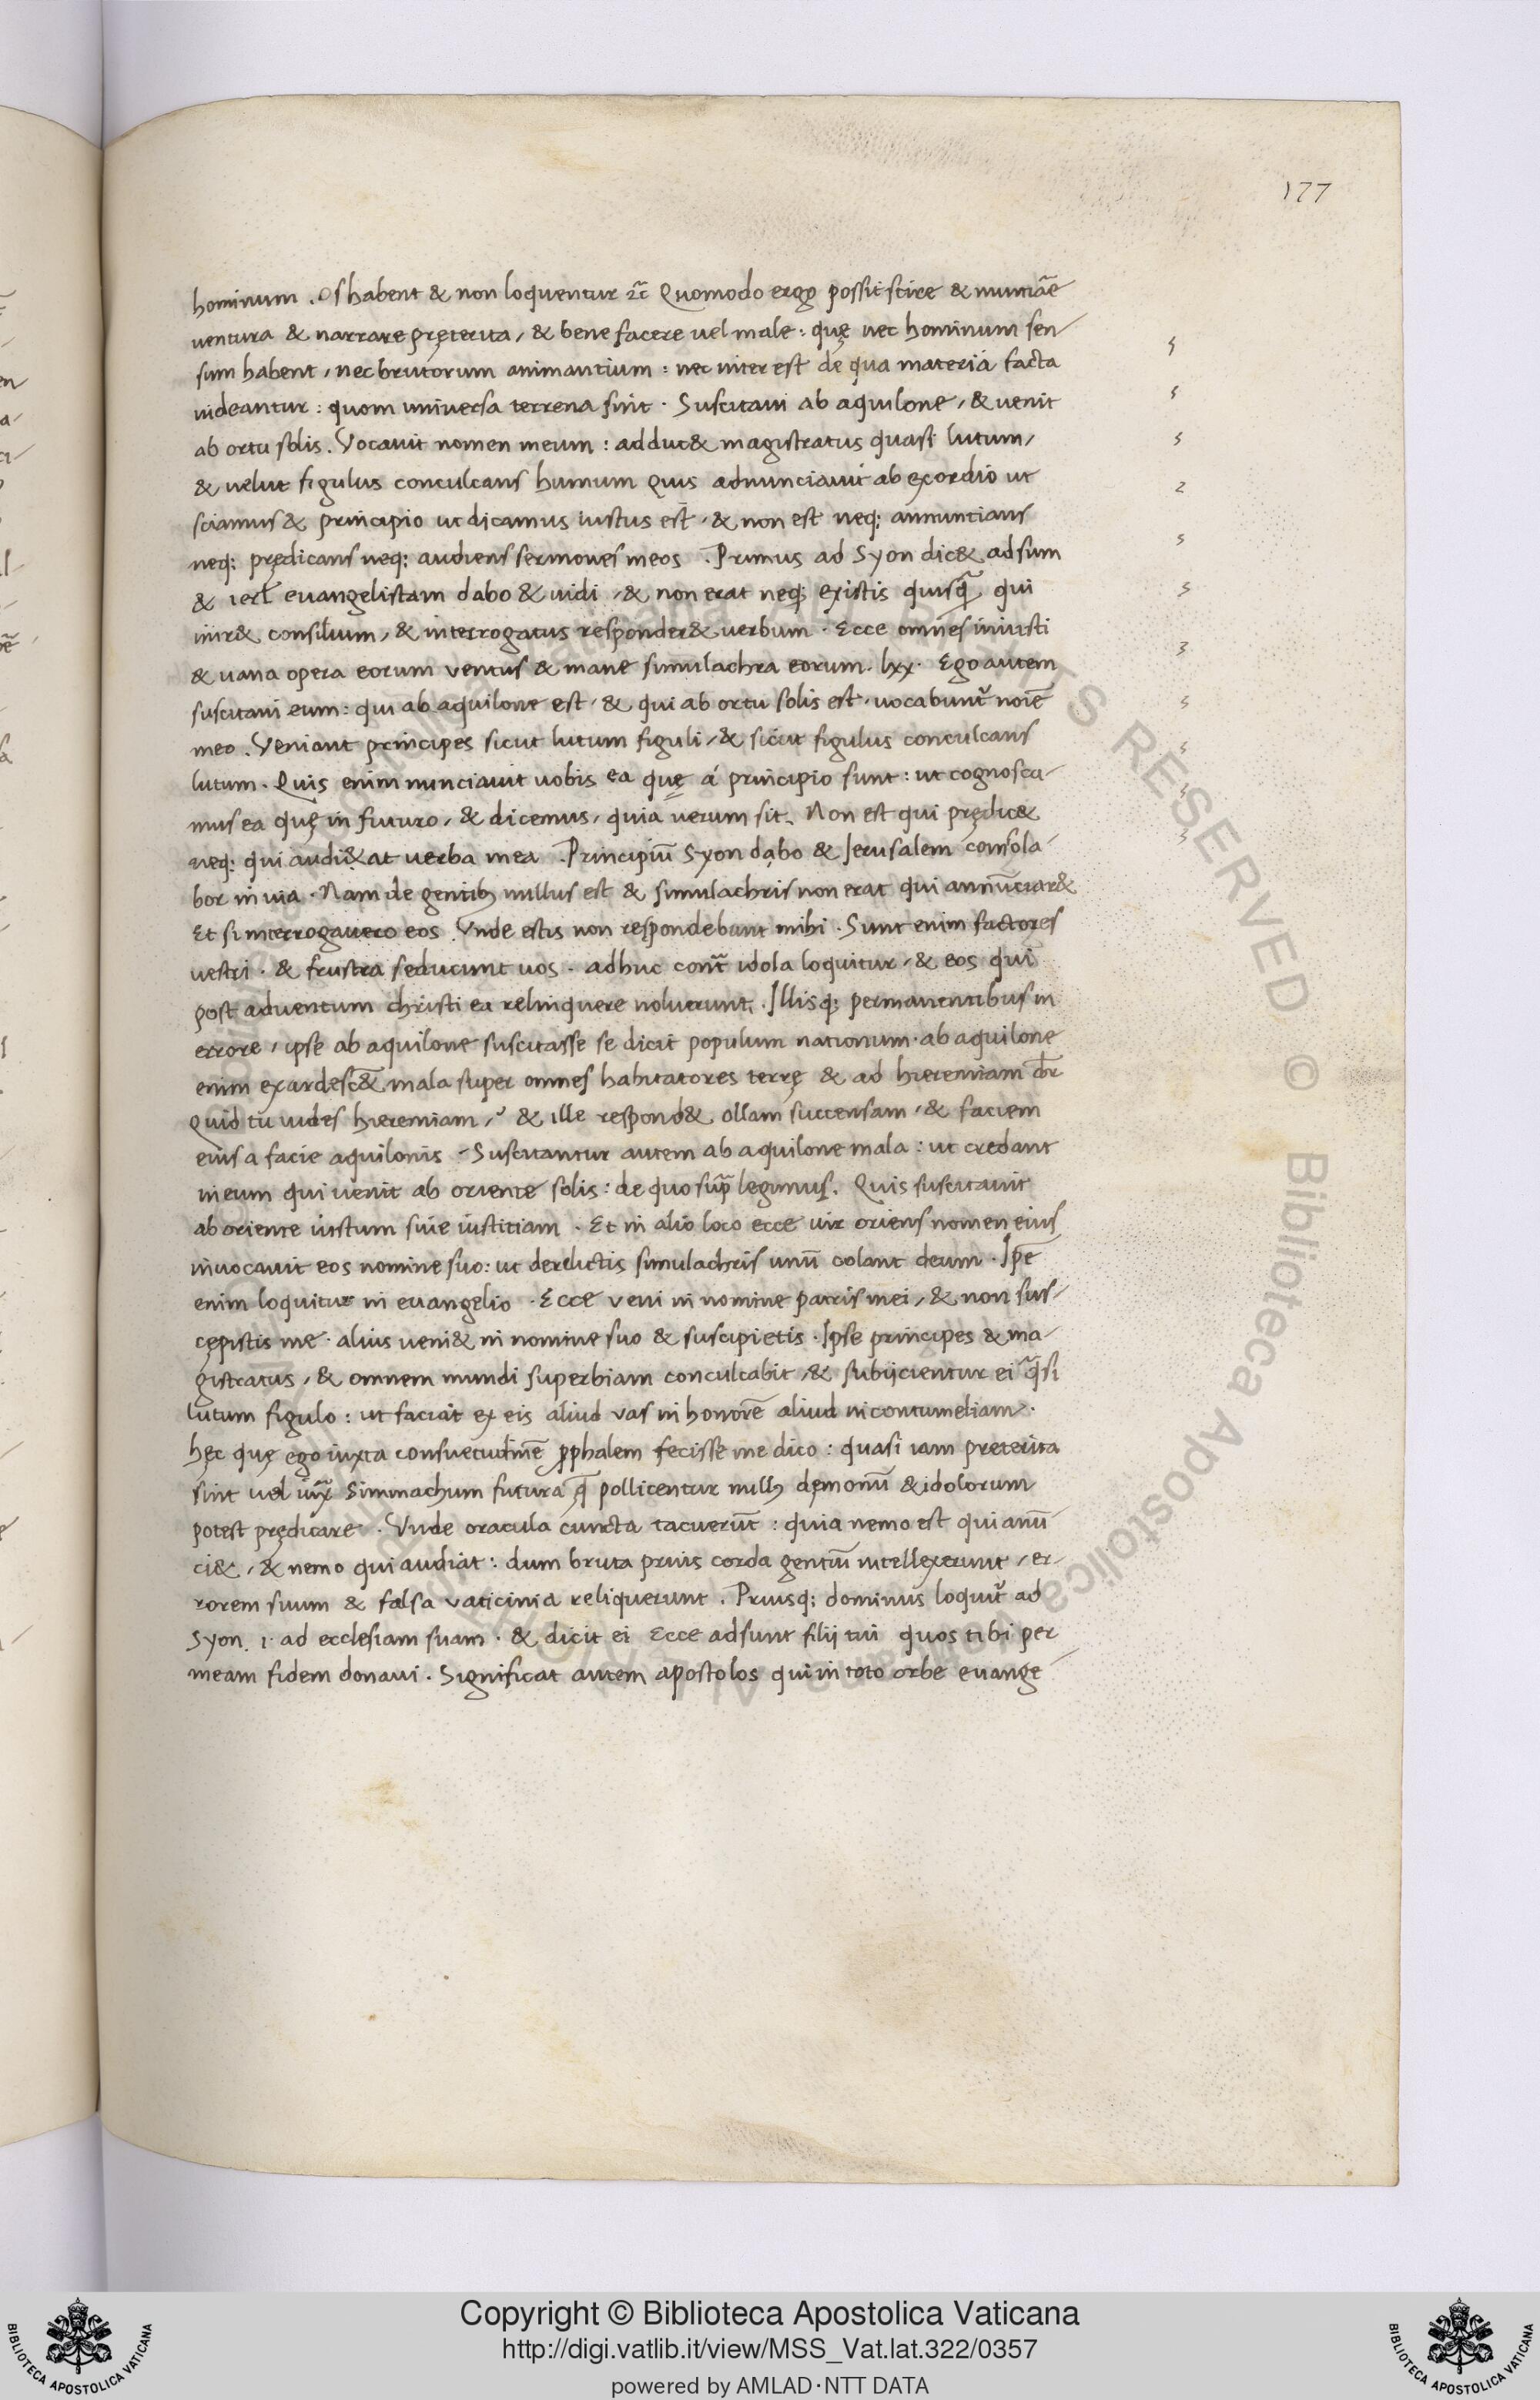 177
hominum . Os habent & non loquentur &c̃ Quomodo ergo possit scire & nuntiãe
ventura & narrare pręterita, & bene facere uel male : quę nec hominum sen
sum habent, nec brutorum animantium : nec interest de qua materiá facta
uideantur : quom universa terrena sint . Suscitavi ab aquilone, & venit
ab ortu solis . Vocavit nomen meum : adduc& magistratus quasi lutum,
& velut figulus conculcans humum Quis adnunciavit ab exordio ut
sciamus & principio ut dicamus iustus est, & non est neq; annuntians
neq; prędicans neq; audiens sermones meos . Primus ad Syon dic& adsum
& ierl̃ evangelistam dabo & uidi, & non erat neq; existis quisq̃ qui
inir& consilium, & interrogatus responder& verbum . Ecce omnes iniusti
& uana opera eorum ventus & mane simulachra eorum . lxx . Ego autem
suscitavi eum : qui ab aquilone est, & qui ab ortu solis est, vocabunt̃ noiẽ
meo . Veniant principes sicut lutum figuli, & sicut figulus conculcans
lutum . Quis enim nunciavit uobis ea quę á principio sunt : ut cognosca
mus ea quę in futuro, & dicemus, quia verum sit . Non est qui prędic&
neq; qui audi&at verba mea . Principiũ Syon dabo & Jerusalem consola
bor in via . Nam de gentib; nullus est & simulachris non erat qui annũciar&
Et si interrogavero eos . Vnde estis non respondebunt mihi . Sunt enim factores
vestri . & frustra seducunt uos . adhuc cont̃ idola loquitur, & eos qui
post adventum christi ea relinquere noluerunt . Illisq; permanentibus in
errore, ipse ab aquilone suscitasse se dicit populum nationum . ab aquilone
enim exardesc& mala super omnes habitatores terrę & ad hieremiam dr̃
Quid tu uides hieremiam, ? & ille respond& ollam succensam, & faciem
eius a facie aquilonis . Suscitantur autem ab aquilone mala : ut credant
in eum qui venit ab oriente solis : de quo sup̃ legimus . Quis suscitavit
ab oriente iustum sive iustitiam . Et in alio loco ecce uir oriens nomen eius
invocavit eos nomine suo : ut derelictis simulachris unũ colant deum . Ip̃e
enim loquitur in evangelio . Ecce veni in nomine patris mei, & non sus
cępistis me . alius veni& in nomine suo & suscipietis . Ipse principes & ma
gistratus, & omnem mundi superbiam conculcabit, & subijcientur ei q̃si
lutum figulo : ut faciat ex eis aliud vas in honorẽ aliud in contumeliam .
hęc quę ego iuxta consuetudinẽ p̱phalem fecisse me dico : quasi iam preterita
sint uel iux̃ Simmachum futura q̃ pollicentur null; dęmonũ & idolorum
potest prędicare . Vnde oracula cuncta tacuerũt : quia nemo est qui anũ
ci&, & nemo qui audiat : dum bruta prius corda gentiũ intellexerunt, er
rorem suum & falsa vaticinia reliquerunt . Priusq; dominus loquit̃ ad
Syon . i . ad ecclesiam suam . & dicit ei Ecce adsunt filij tui quos tibi per
meam fidem donavi . Significat autem apostolos qui in toto orbe evange
RIGHTS RESERVED © Biblioteca Apostolica
Copyright © Biblioteca Apostolica Vaticana
http://digi.vatlib.it/view/MSS_Vat.lat.322/0357
powered by AMLAD·NTT DATA
BIBLIOTECA APOSTOLICA VATICANA
BIBLIOTECA APOSTOLICA VATICANA